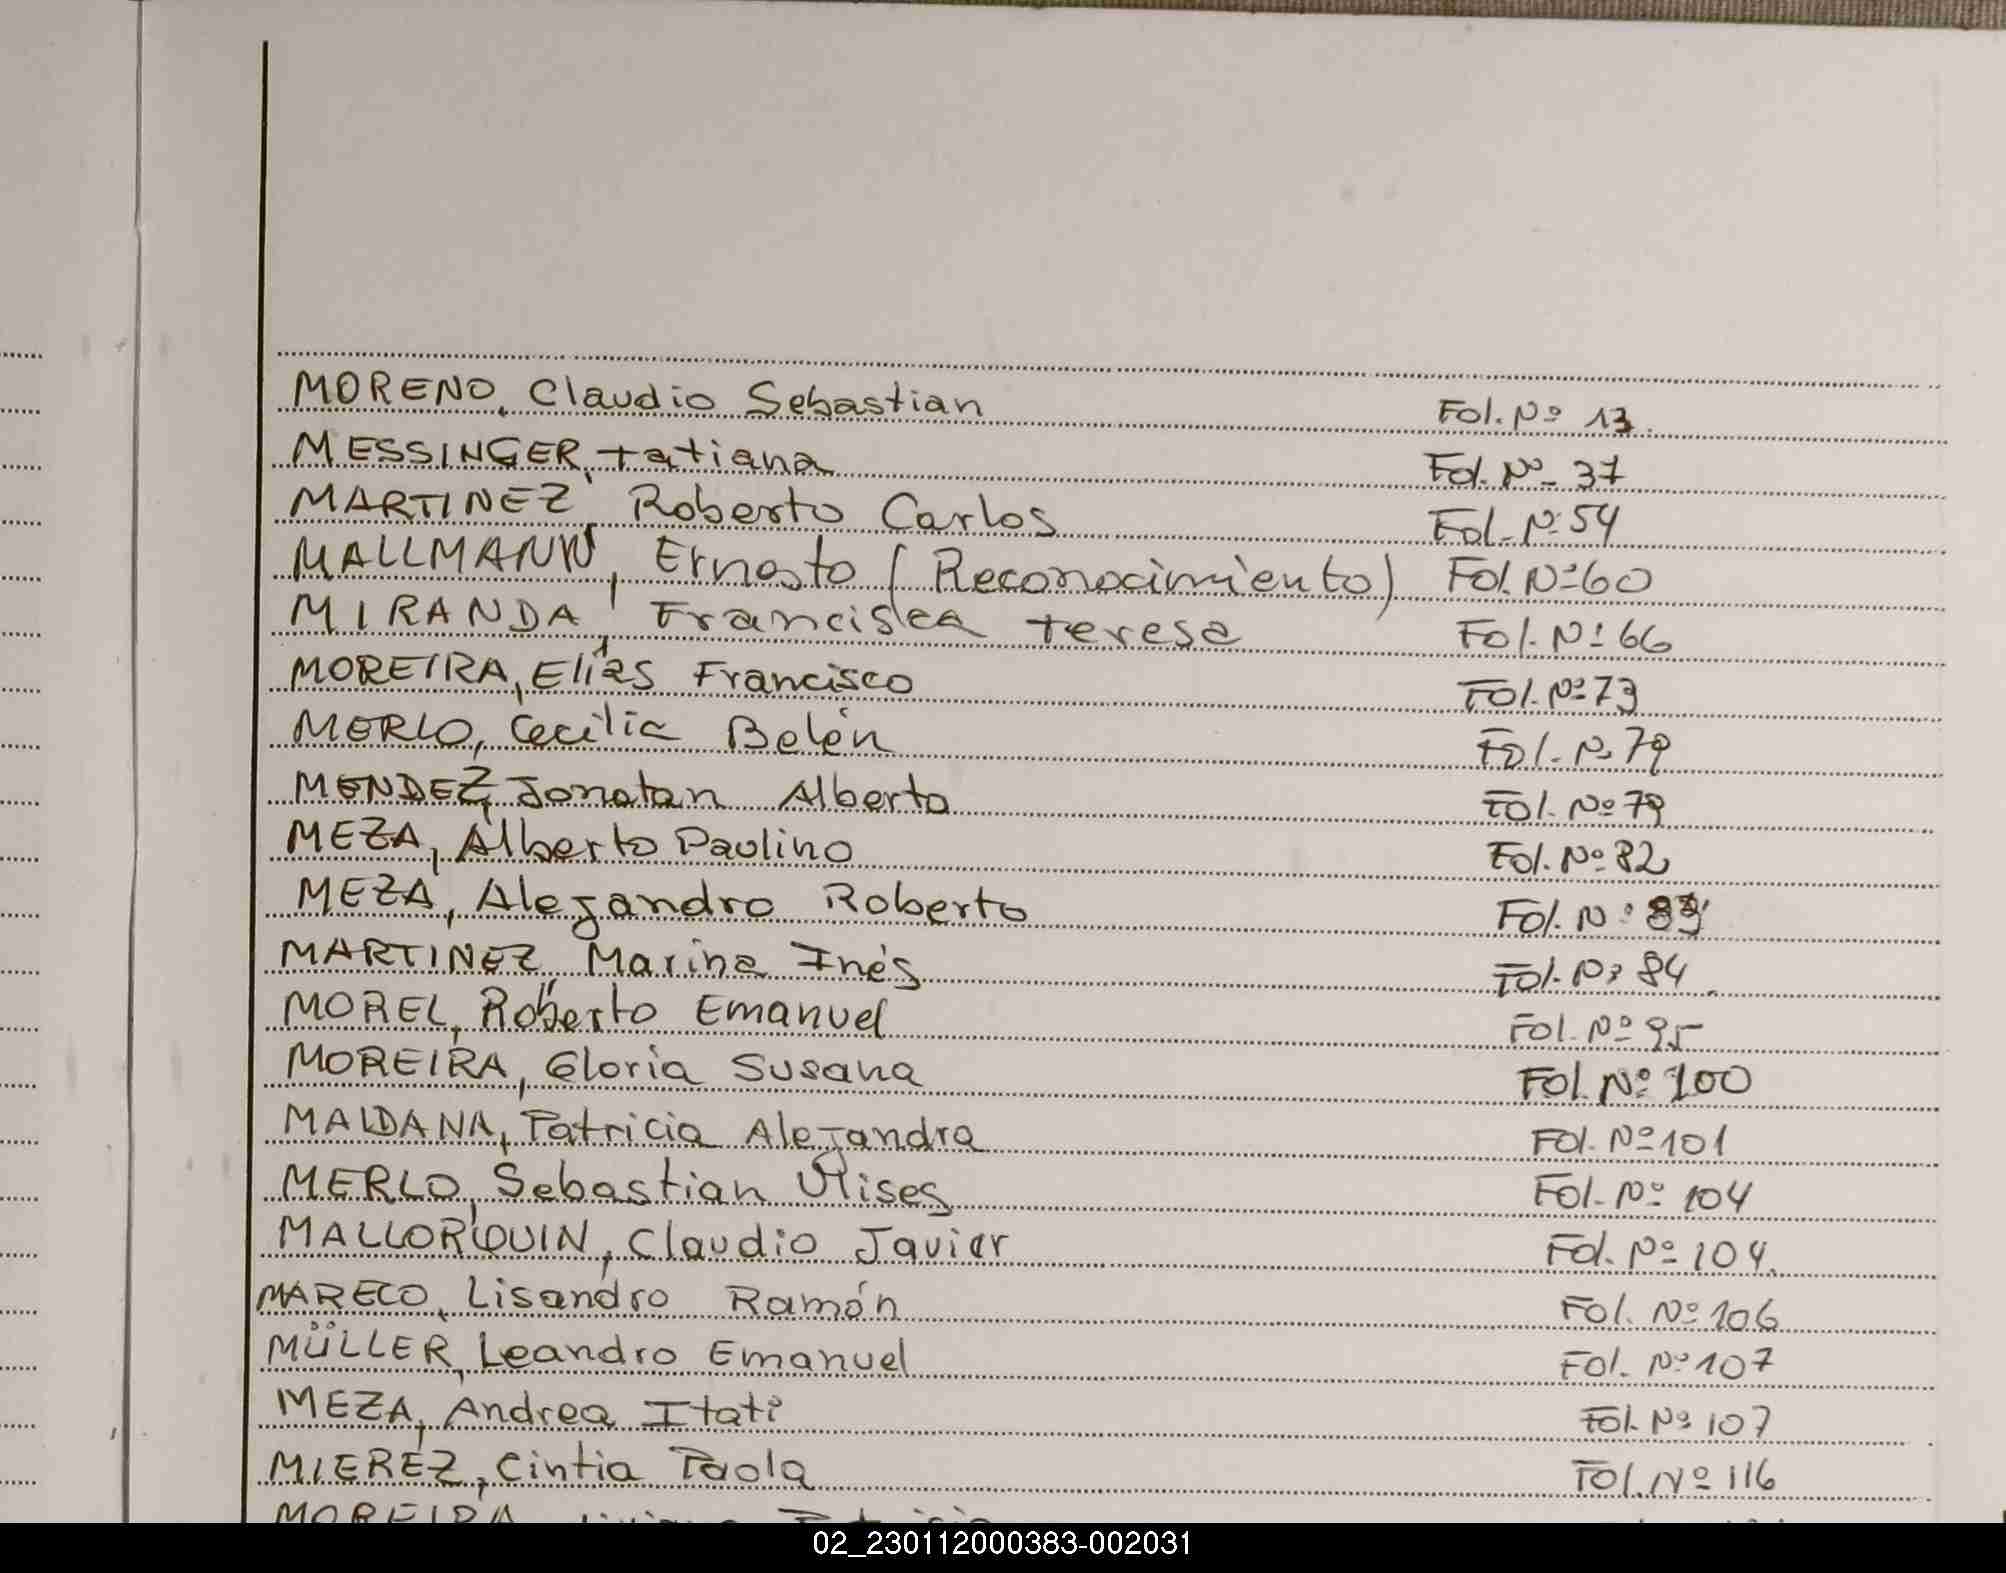 MORENO, Claudio Sebastian Fol. Nº 13.
MESSINGER, Tatiana Fol. Nº 37
MARTINEZ, Roberto Carlos Fol. Nº 54
MALLMANN, Ernesto (Reconocimiento) Fol. Nº 60
MIRANDA, Francisca Teresa Fol. Nº 66
MOREIRA, Elías Francisco Fol. Nº 73
MERLO, Cecilia Belén Fol. Nº 79
MENDEZ, Jonatan Alberto Fol. Nº 79
MEZA, Alberto Paulino Fol. Nº 82
MEZA, Alejandro Roberto Fol. Nº 83
MARTINEZ, Marina Inés Fol. Nº 84
MOREL, Roberto Emanuel Fol. Nº 95
MOREIRA, Gloria Susana Fol. Nº 100
MALDANA, Patricia Alejandra Fol. Nº 101
MERLO, Sebastian Ulises Fol. Nº 104
MALLORQUIN, Claudio Javier Fol. Nº 104.
MARECO, Lisandro Ramón Fol. Nº 106
MÜLLER, Leandro Emanuel Fol. Nº 107
MEZA, Andrea Itati Fol. Nº 107
MIEREZ, Cintia Paola Fol. Nº 116
MOREIRA
02_230112000383-002031